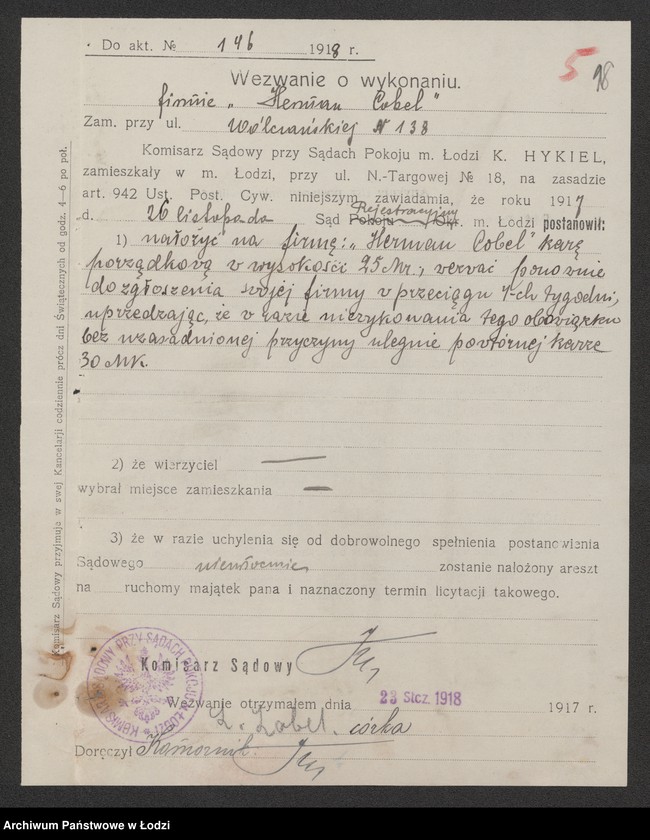 Do akt. № 146 1918 r.
5 98
Wezwanie o wykonaniu.
firmie „Herman Cobel"
Zam. przy ul. Wólczańskiej N 138
Komisarz Sądowy przy Sądach Pokoju m. Łodzi K. HYKIEL,
zamieszkały w m. Łodzi, przy ul. N.-Targowej № 18, na zasadzie
art. 942 Ust. Post. Cyw. niniejszym zawiadamia, że roku 1917
d. 26 listopada Sąd Pokoju Okr. Rejestracyjny m. Łodzi postanowił:
1) nałożyć na firmę: „Herman Cobel" karę
porządkową w wysokości 25 Mr., wezwać ponownie
do zgłoszenia swojej firmy w przeciągu 4-ch tygodni,
uprzedzając, że w razie niewykonania tego obowiązku
bez uzasadnionej przyczyny ulegnie powtórnej karze
30 Mk.
2) że wierzyciel —
wybrał miejsce zamieszkania —
3) że w razie uchylenia się od dobrowolnego spełnienia postanowienia
Sądowego niezwłocznie zostanie nałożony areszt
na ruchomy majątek pana i naznaczony termin licytacji takowego.
Komisarz Sądowy
KOMISARZ SĄDOWY PRZY SĄDACH POKOJU M. ŁODZI
Wezwanie otrzymałem dnia 23 Stcz. 1918 1917 r.
Z. Zobel. córka
Doręczył Komornik:
Komisarz Sądowy przyjmuje w swej Kancelarji codziennie prócz dni Świątecznych od godz. 4–6 po poł.
Archiwum Państwowe w Łodzi